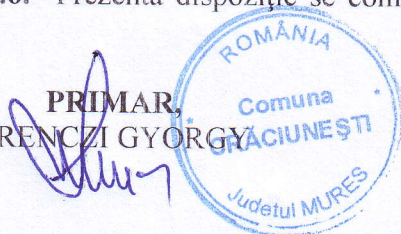 Prezenta dispoziție se com
PRIMAR,
RENCZI GYÖRGY
ROMÂNIA
Comuna
CRĂCIUNEȘTI
Județul MUREȘ